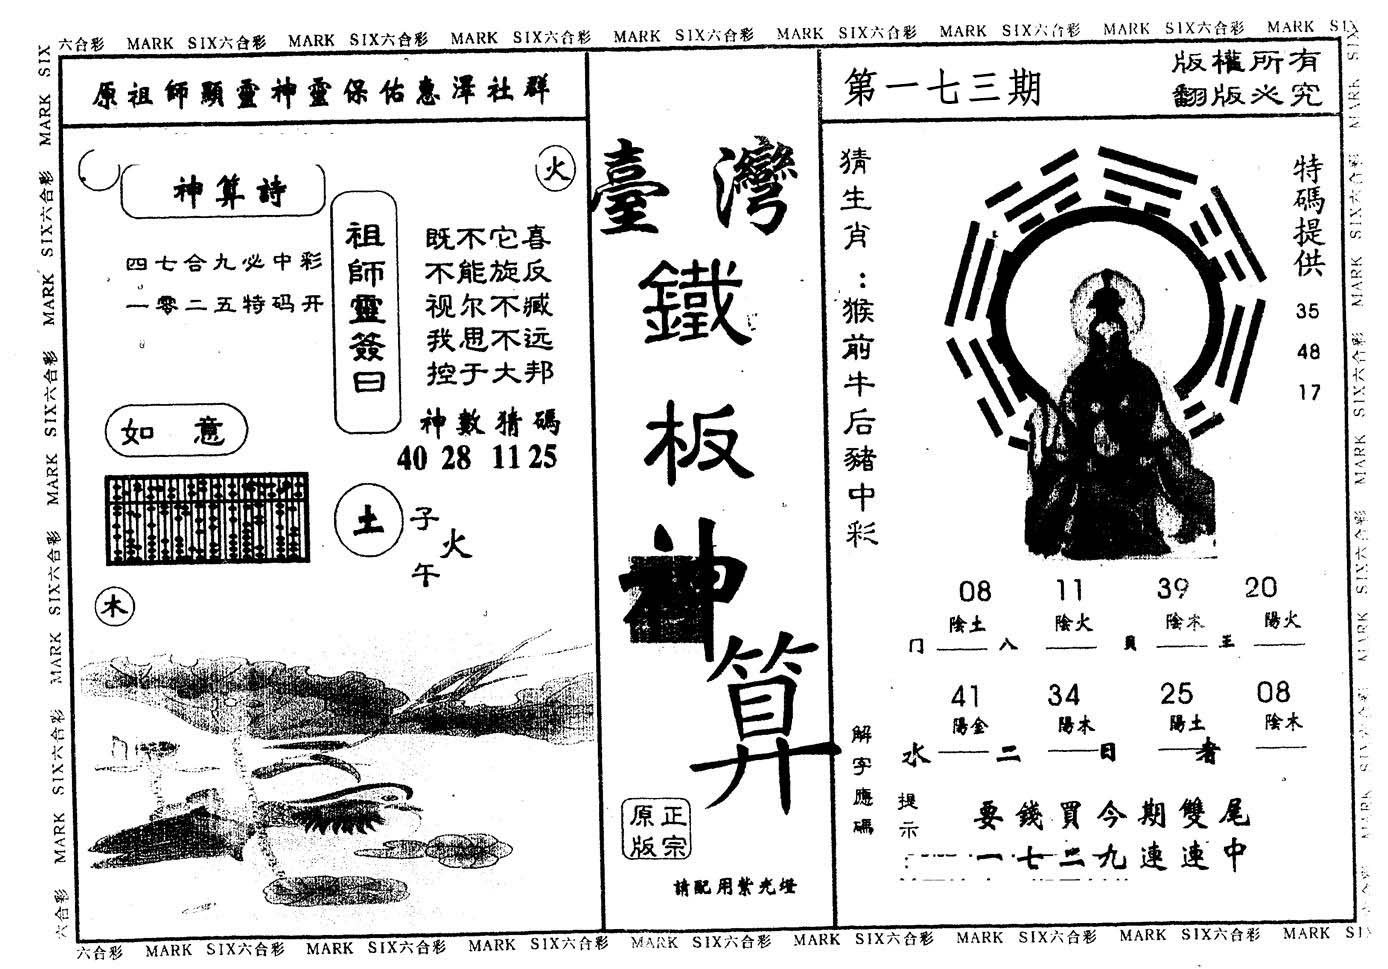 六合彩 MARK SIX六合彩 MARK SIX六合彩 MARK SIX六合彩 MARK SIX六合彩 MARK SIX六合彩 MARK SIX六合彩 MARK SIX六合彩 MARK SIX
原祖師顯靈神靈保佑惠澤社群
火
神算詩
四七合九必中彩
一零二五特码开
祖師靈簽曰
既不它喜
不能旋反
视尔不臧
我思不远
控于大邦
神數猜碼
40 28 11 25
如意
土
子
火
午
木
臺灣
鐵
板
神
算
正宗
原版
請配用紫光燈
第一七三期
版權所有
翻版必究
猜生肖：猴前牛后豬中彩
特碼提供
35
48
17
08 11 39 20
陰土 陰火 陰木 陽火
门 入 貝 王
41 34 25 08
陽金 陽木 陽土 陰木
水 二 日 者
解字應碼
提示
要錢買今期雙尾
一七二九連連中
六合彩 MARK SIX六合彩 MARK SIX六合彩 MARK SIX六合彩 MARK SIX六合彩 MARK SIX六合彩 MARK SIX六合彩 MARK SIX六合彩 MARK SIX